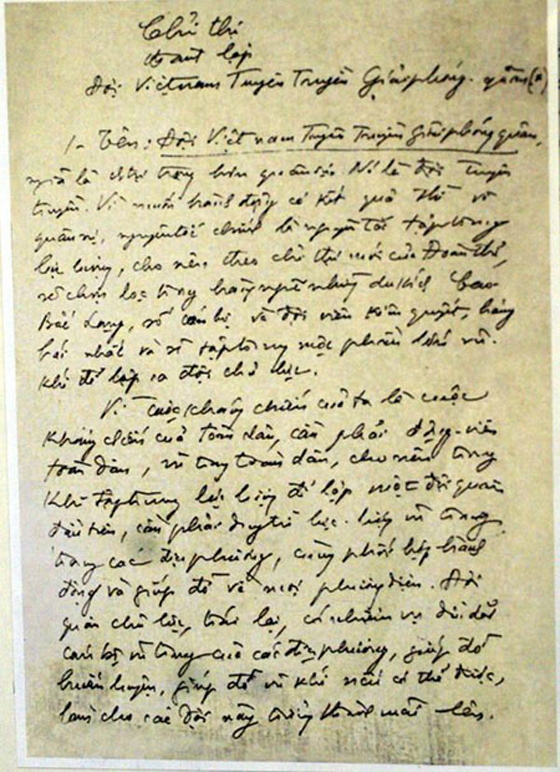 Chỉ thị
thành lập
Đội Việt nam Tuyên Truyền Giải phóng quân (a)
1- Tên: Đội Việt nam Tuyên Truyền Giải phóng quân,
nghĩa là chính trị trọng hơn quân sự. Nó là đội tuyên
truyền. Vì muốn hành động có kết quả thì về
quân sự, nguyên tắc chính là nguyên tắc tập trung
lực lượng, cho nên, theo chỉ thị mới của Đoàn thể,
sẽ chọn lọc trong hàng ngũ những du kích Cao
Bắc Lạng, số cán bộ và đội viên kiên quyết, hăng
hái nhất và sẽ tập trung một phần lớn vũ
khí để lập ra đội chủ lực.
Vì cuộc kháng chiến của ta là cuộc
kháng chiến của toàn dân, cần phải động viên
toàn dân, vũ trang toàn dân, cho nên trong
khi tập trung lực lượng để lập một đội quân
đầu tiên, cần phải duy trì lực lượng vũ trang
trong các địa phương, cùng phối hợp hành
động và giúp đỡ về mọi phương diện. Đội
quân chủ lực, trái lại, có nhiệm vụ dìu dắt
cán bộ vũ trang của các địa phương, giúp đỡ
huấn luyện, giúp đỡ vũ khí nếu có thể được,
làm cho các đội này trưởng thành mãi lên.